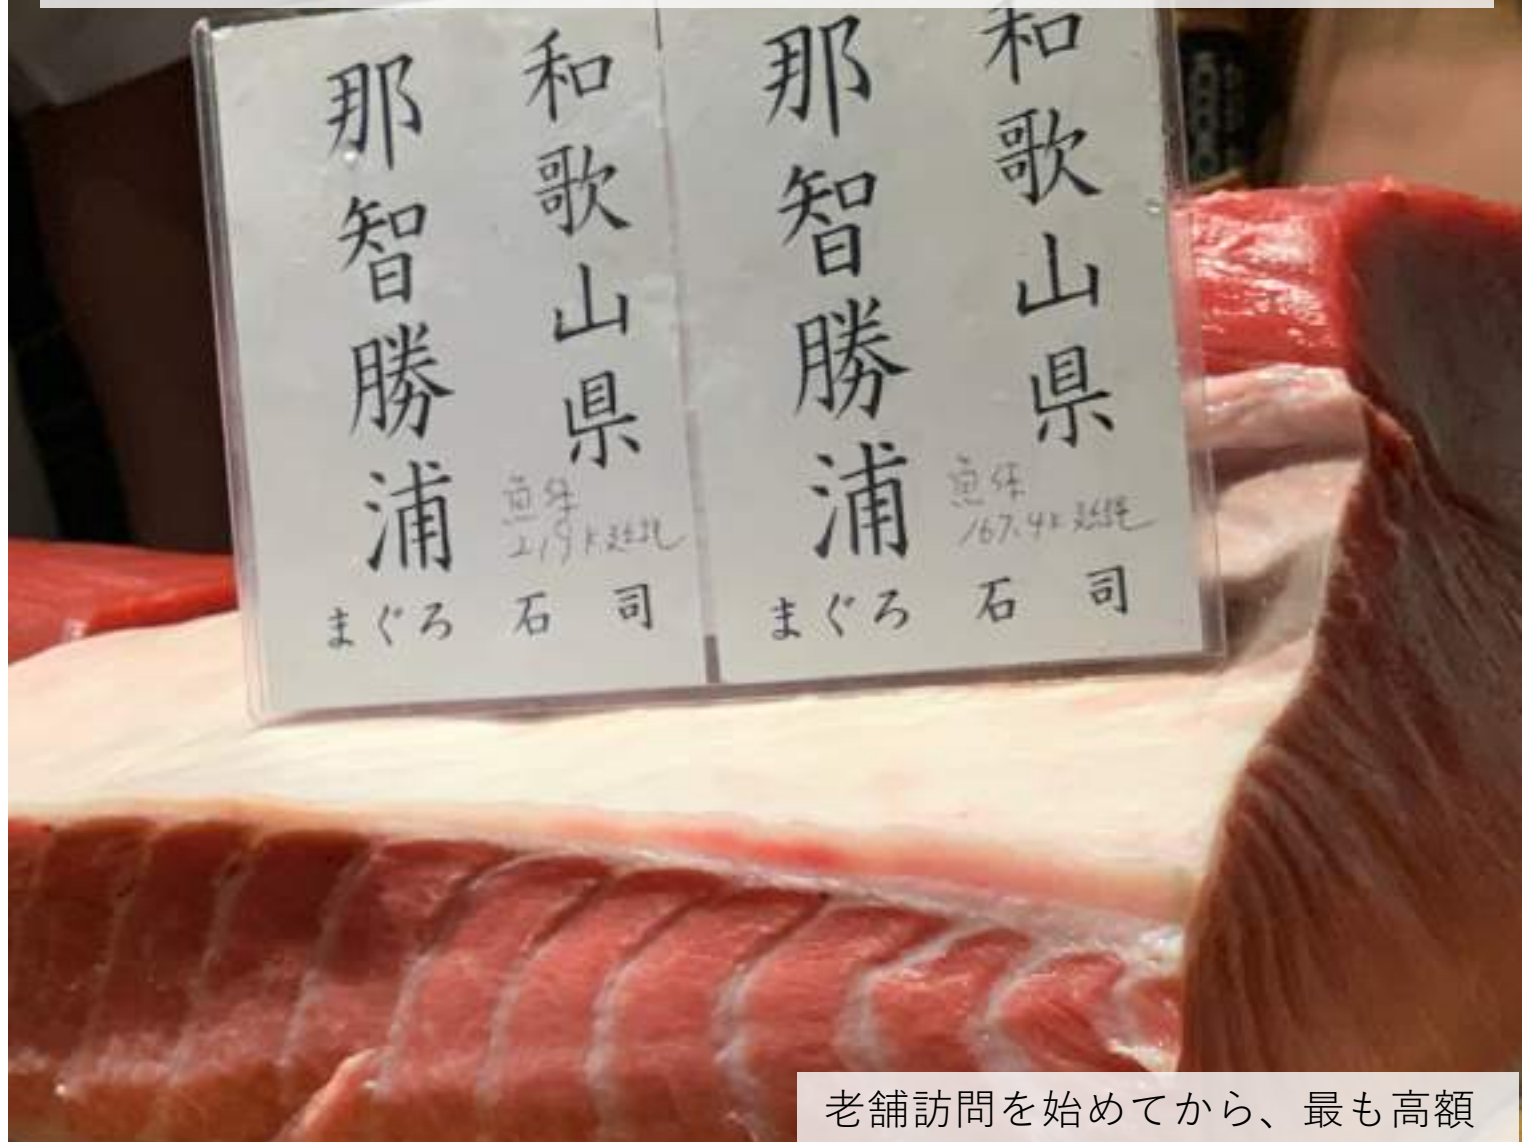 和歌山県
那智勝浦
魚体
167.4k 延縄
まぐろ 石司
和歌山県
那智勝浦
魚体
219k 延縄
まぐろ 石司
老舗訪問を始めてから、最も高額